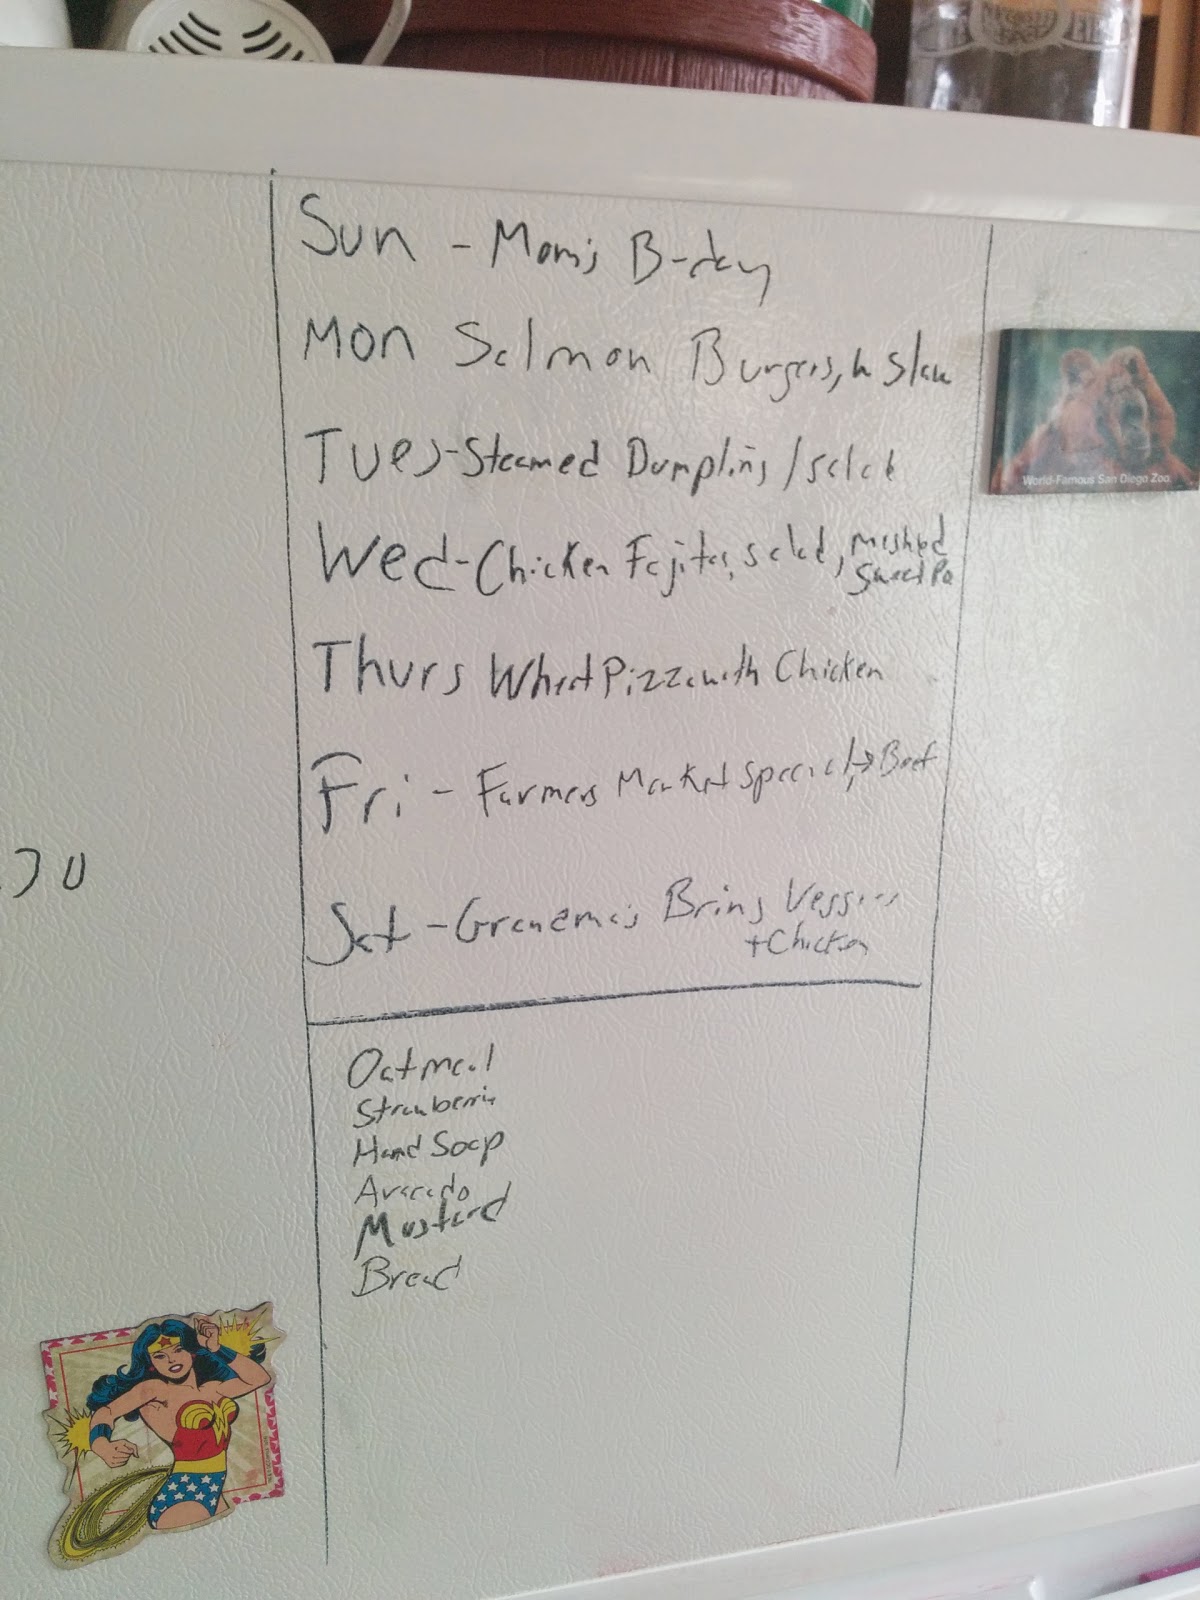 Sun - Mom's B-day
Mon Salmon Burgers, Slaw
Tues-Steamed Dumplings / salad
Wed-Chicken Fajitas, salad, mashed
Sweet Po
Thurs Wheat Pizza with Chicken
Fri - Farmers Market Special, → Beef
Sat - Grandma's Bring Veggies
+Chicken
Oatmeal
Strawberries
Hand Soap
Avocado
Mustard
Bread
World-Famous San Diego Zoo